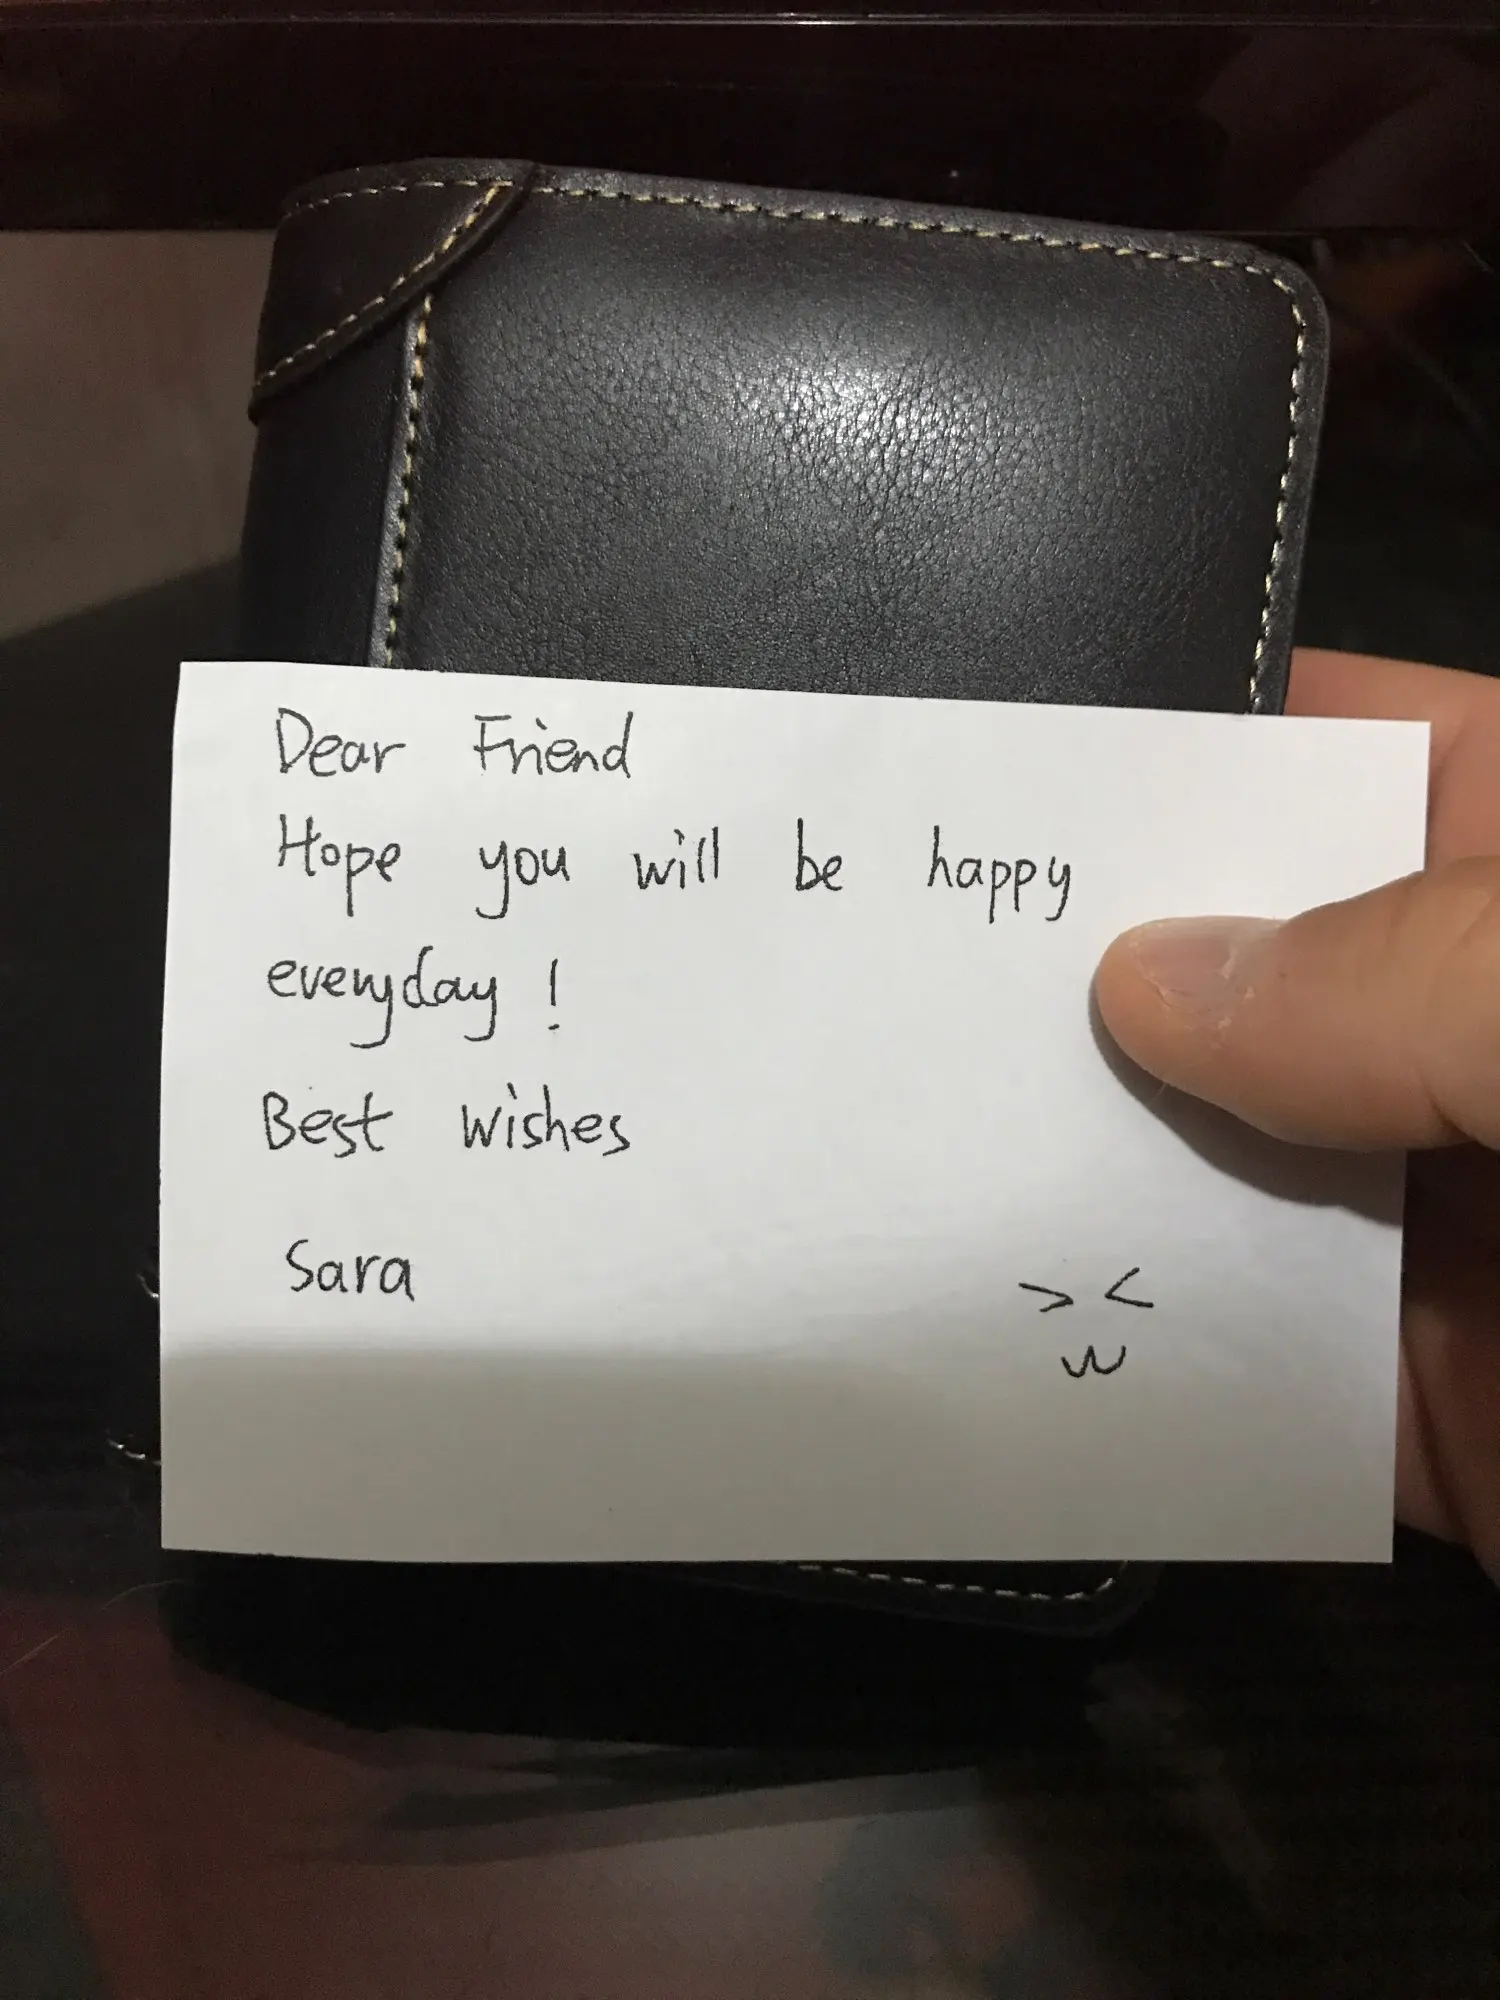 Dear Friend
Hope you will be happy
everyday!
Best wishes
Sara
> <
w